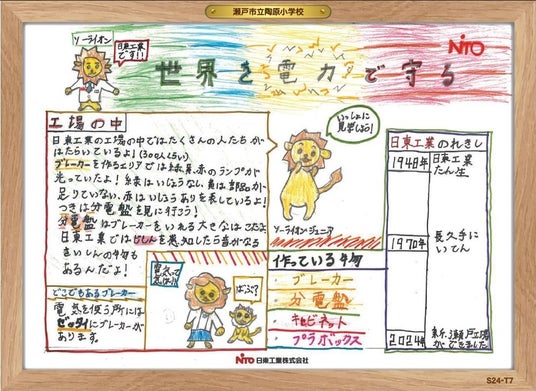 瀬戸市立陶原小学校
ソーライオン
日東工業
です!!
NiTO
世界を電力で守る
工場の中
日東工業の工場の中ではたくさんの人たちが
はたらいているよ!(300人くらい)
ブレーカーを作るエリアでは緑、黄、赤のランプが
光っていたよ!緑はいじょうなし、黄は部品が
足りていない、赤はいじょうありを表しているよ!
つぎは分電盤を見に行こう!
分電盤はブレーカーをいれる大きなはこだよ
日東工業ではじしんを感知したら音がなる
きいしの物も
あるんだよ!
いっしょに
見学しよう!
ソーライオンジュニア
日東工業のれきし
1948年
日東工業
たん生
1970年
長久手に
いてん
2024年
どこでもあるブレーカー
電気を使う所には
ゼッタイにブレーカーが
あります。
作っている物
・ブレーカー
・分電盤
・キャビネット
・プラボックス
NiTO 日東工業株式会社
S24-T7